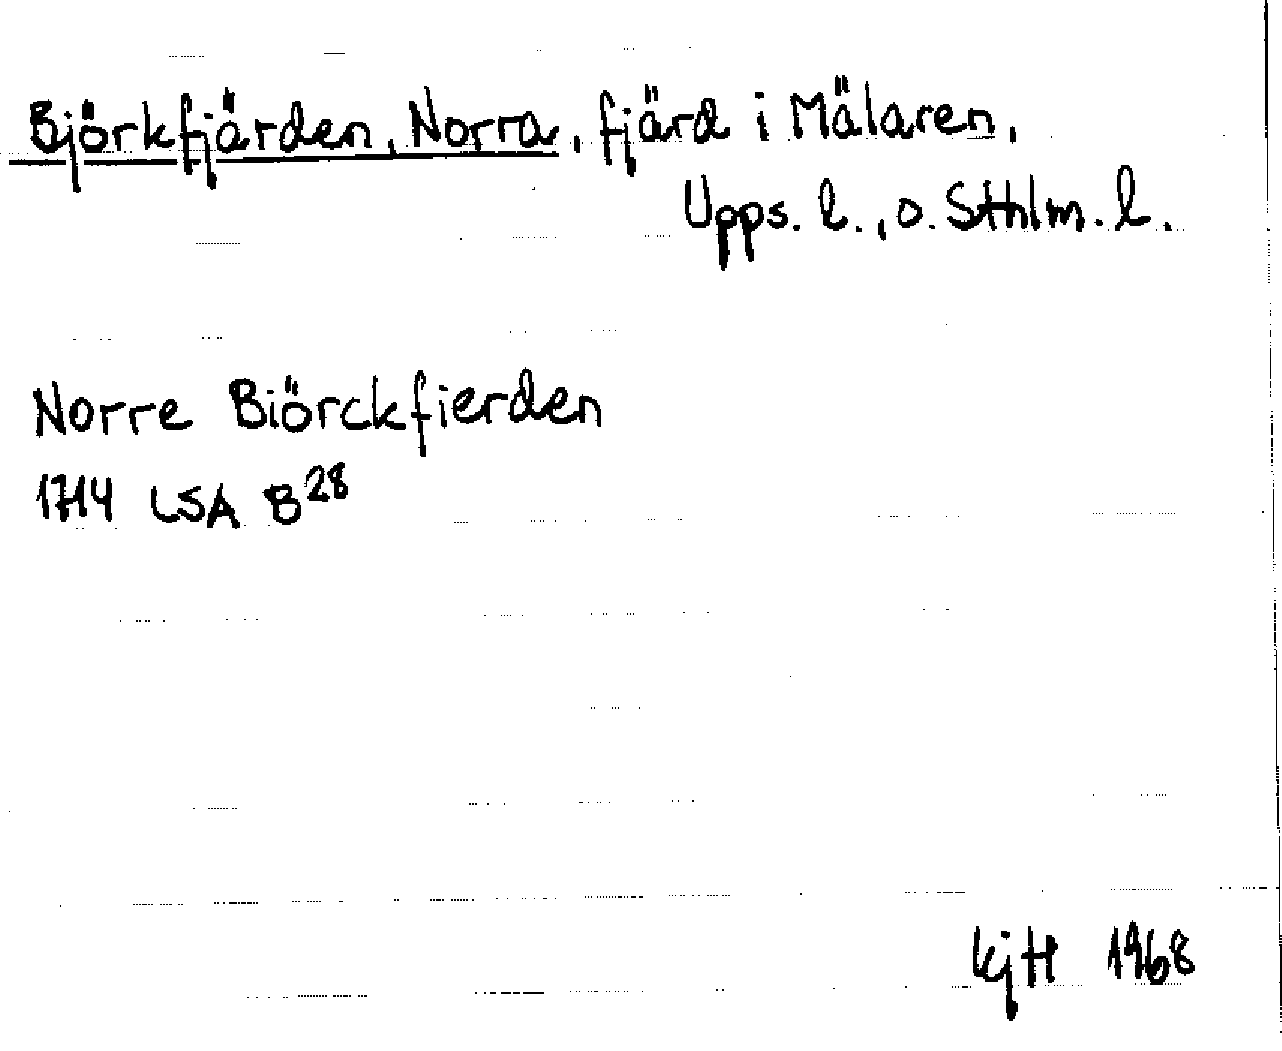 Björkfjärden, Norra, fjärd i Mälaren,
Upps. l., o. Sthlm. l.
Norre Biörckfierden
1714 LSA B28
KjH 1968